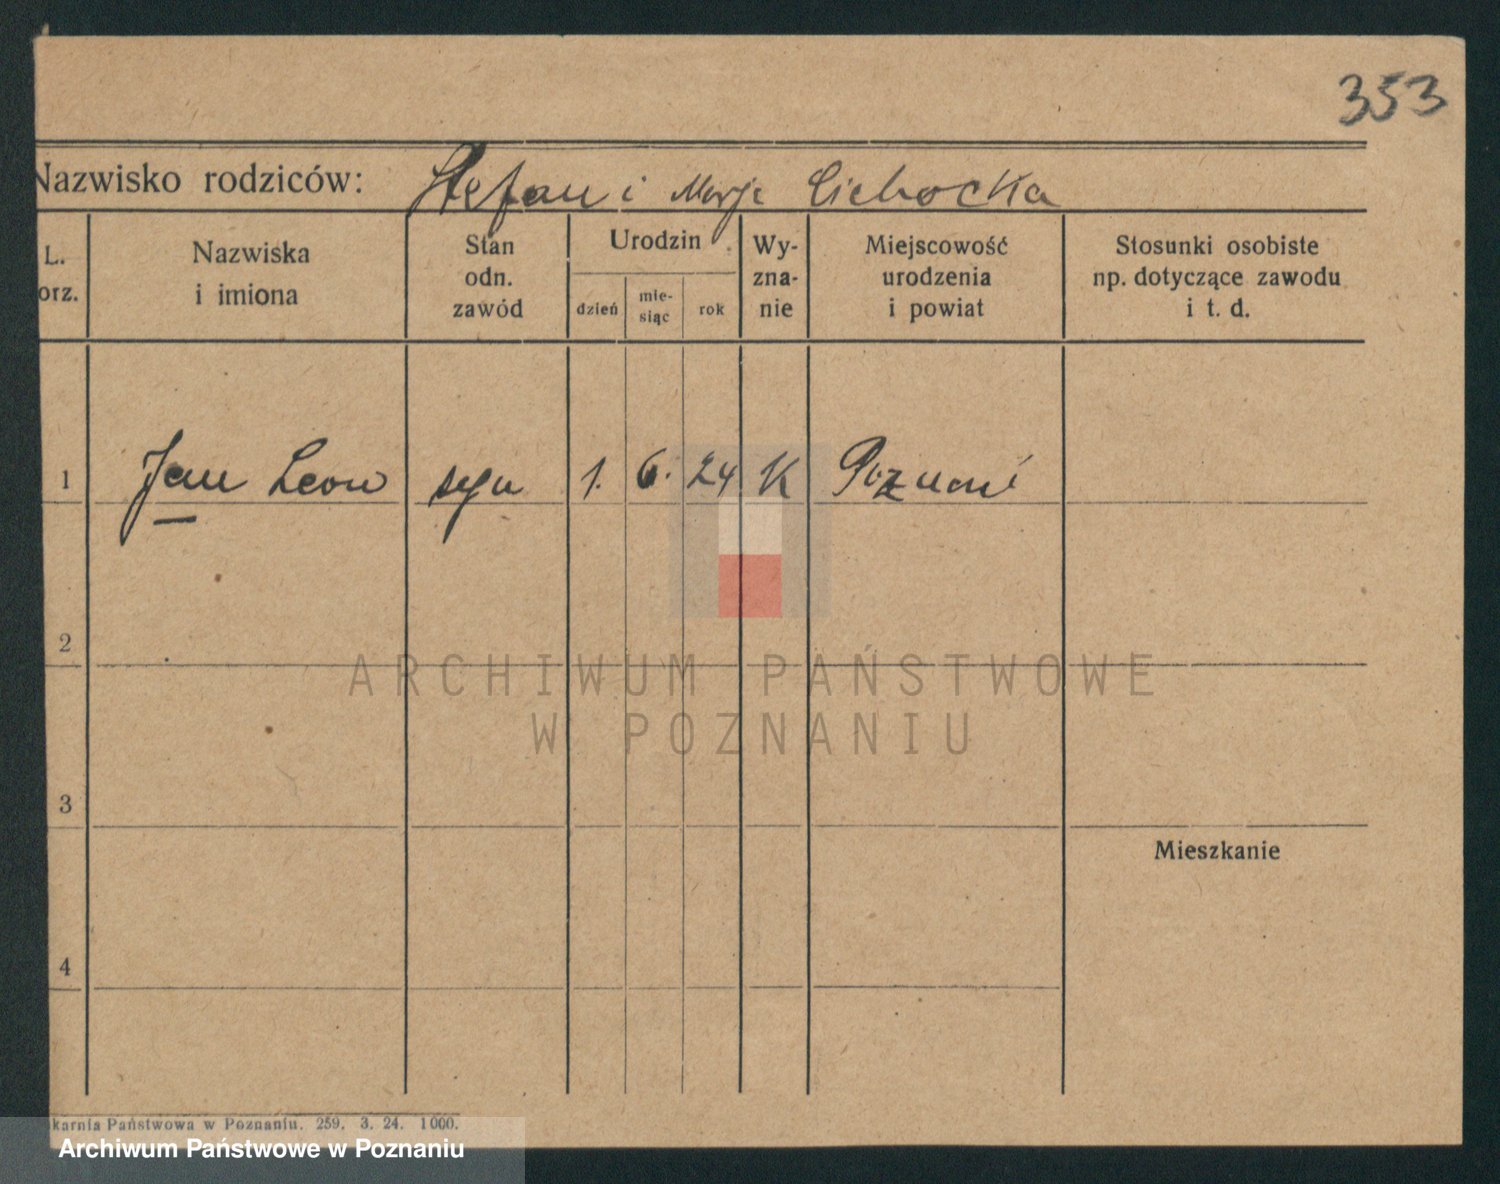 353
Nazwisko rodziców: Stefan i Marja Cichocka
L. orz.
Nazwiska i imiona
Stan odn. zawód
Urodzin
dzień
mie- siąc
rok
Wy- zna- nie
Miejscowość urodzenia i powiat
Stosunki osobiste np. dotyczące zawodu i t. d.
1 Jan Leon syn 1. 6. 24 K Poznań
2
ARCHIWUM PAŃSTWOWE
W POZNANIU
3
Mieszkanie
4
karnia Państwowa w Poznaniu. 259. 3. 24. 1000.
Archiwum Państwowe w Poznaniu